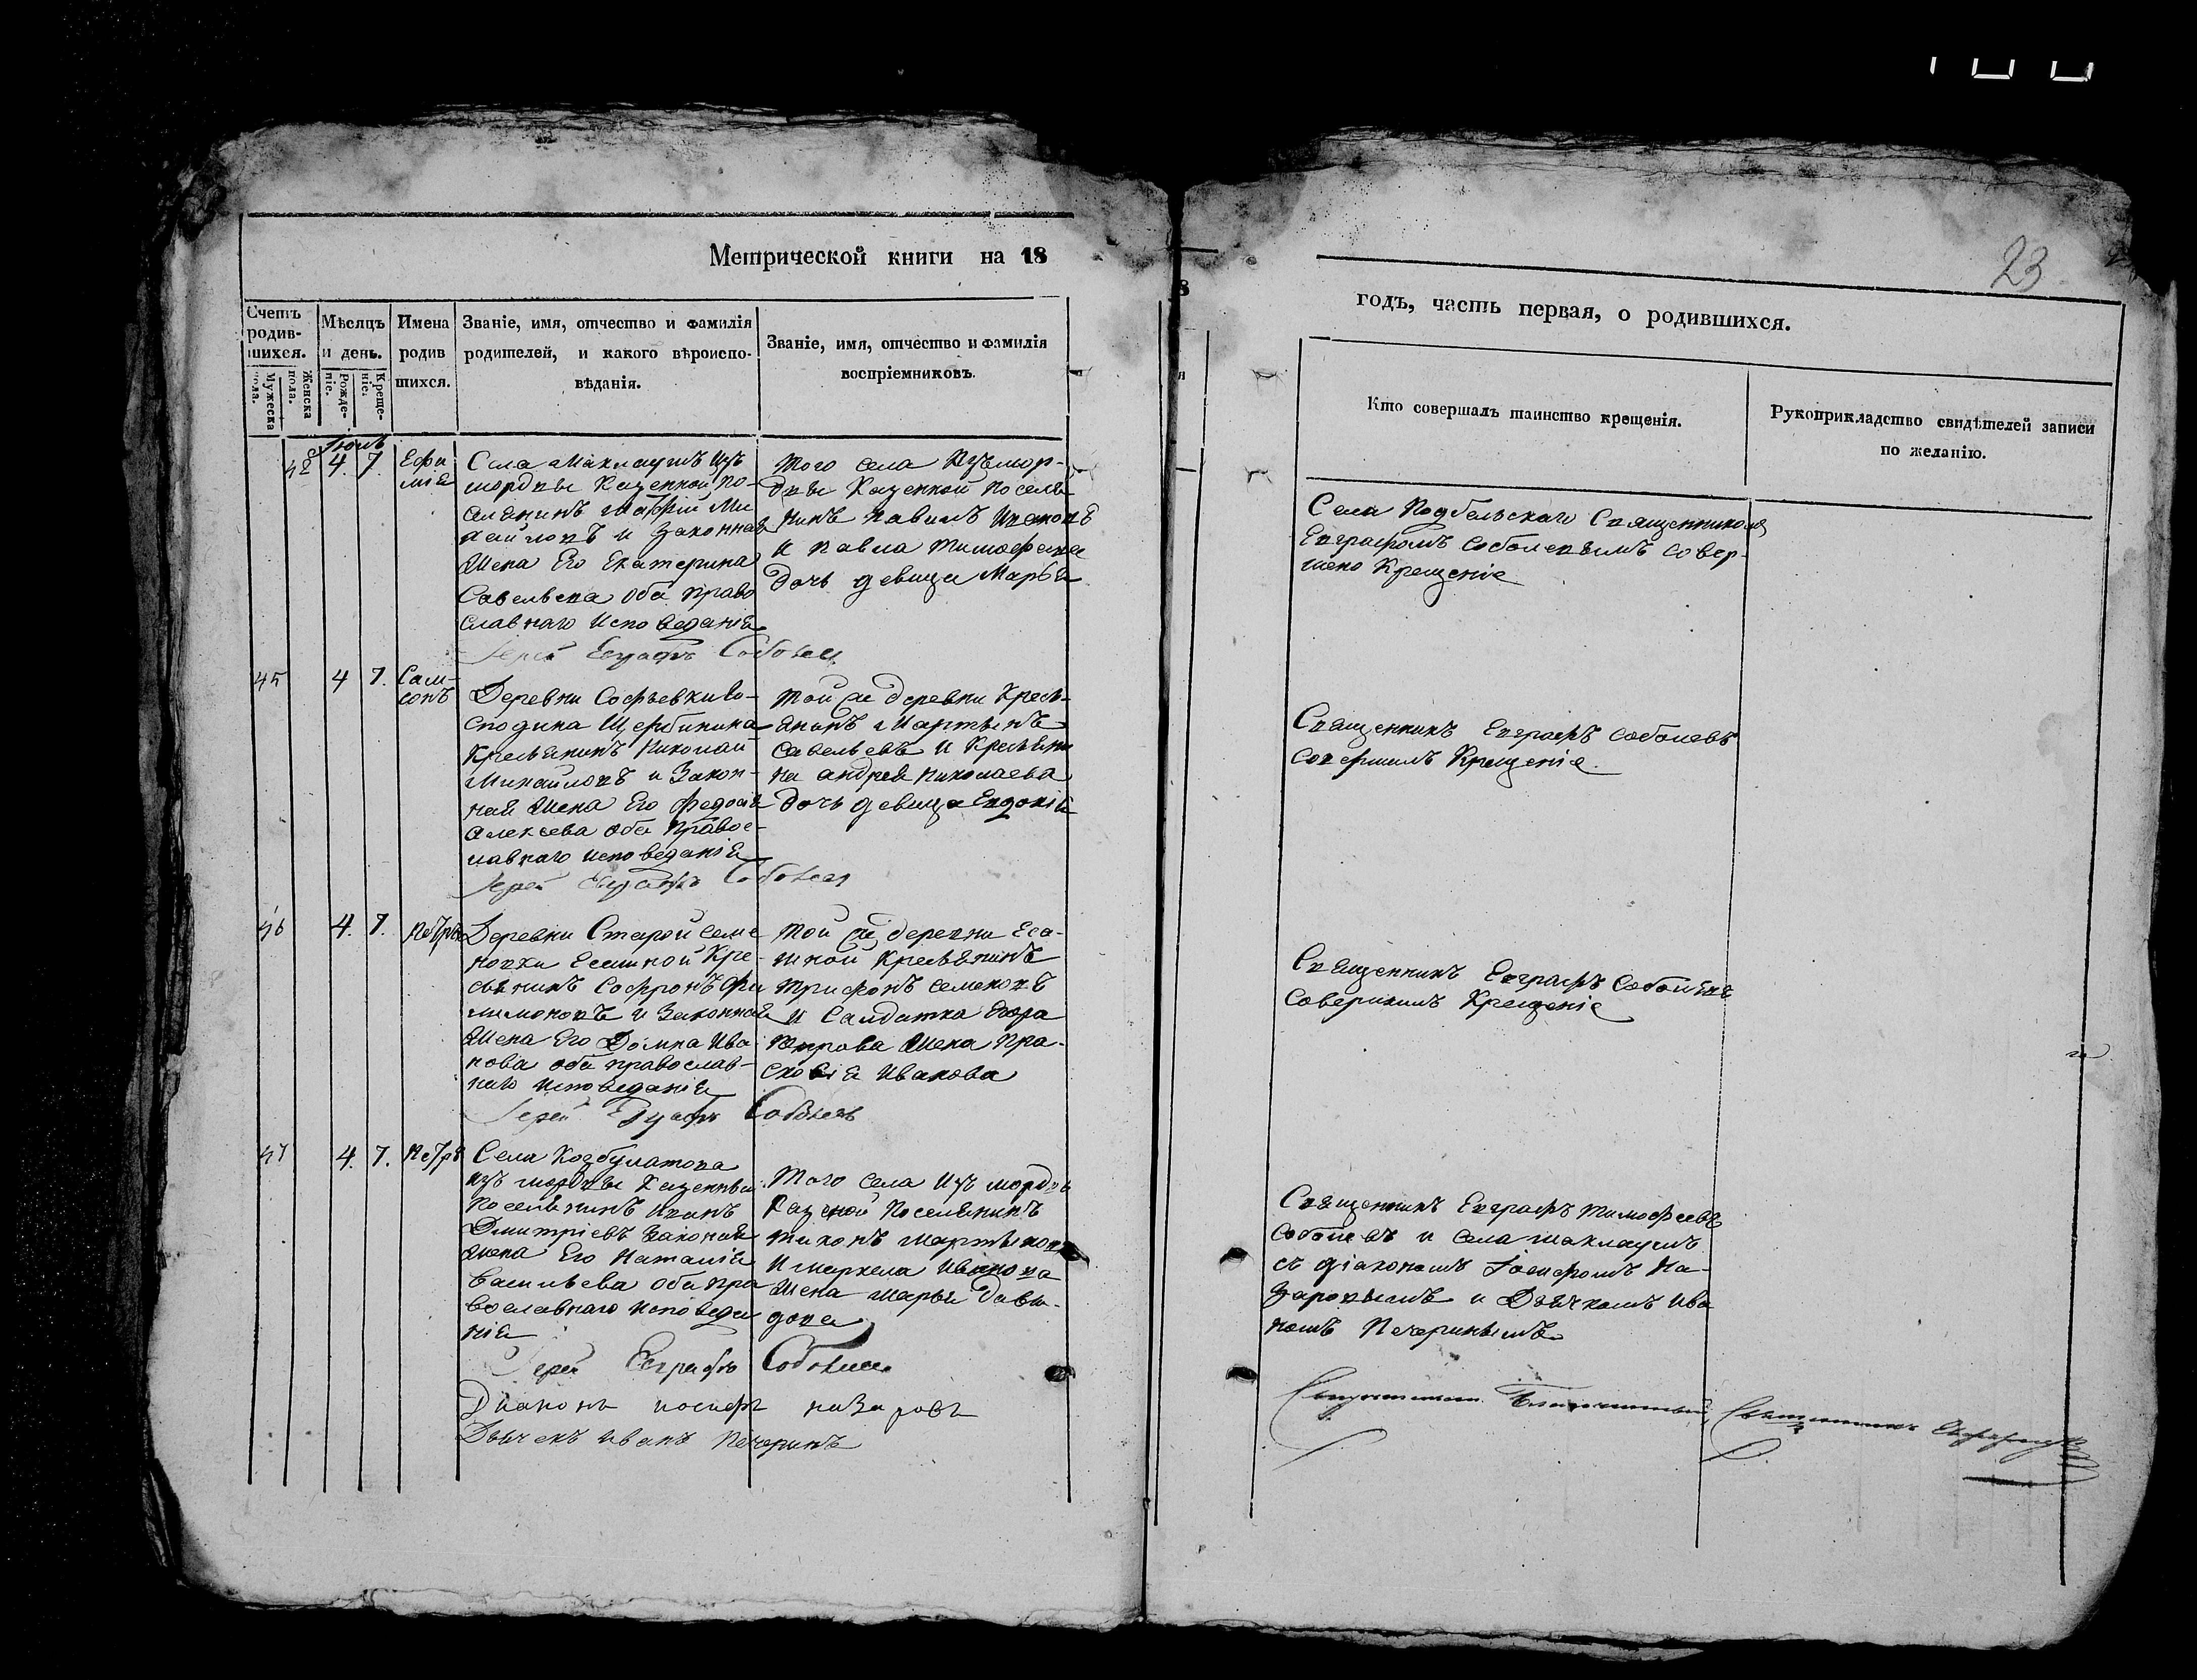 23
Метрической книги на 18
годъ, часть первая, о родившихся.
Счетъ родившихся.
Мужеска пола.
Женска пола.
Мѣсяцъ и день.
Рожденіе.
Крещеніе.
Имена родив
шихся.
Званіе, имя, отчество и фамилія
родителей, и какого вѣроиспо-
вѣданія.
Званіе, имя, отчество и фамилія
воспріемниковъ.
Кто совершалъ таинство крещенія.
Рукоприкладство свидѣтелей записи
по желанію.
Іюль
42 4. 7. Ефи
мія
Села Маклаушъ изъ
мордвы Казенной по-
селянинъ Матфій Ми
хайловъ и Законная
Жена Его Екатерина
Савельева оба право
славнаго исповеданія
Іерей Евграфъ Соболев
того села изъ мор-
двы Казенной поселя
нинъ Павилъ Ивановъ
и Павла Тимофеева
дочь девица Марья
Села Подбельскаго Священникомъ
Евграфомъ Соболевымъ совер-
шено Крещеніе
45 4 7. Сам-
сонъ
Деревни Софьевки Го-
сподина Щербинина
Крестьянинъ Николай
Михайловъ и Закон-
ная Жена Его Федосия
Алексеева оба правос-
лавнаго исповеданія
Іерей Евграфъ Соболев
той же деревни Кресть-
янинъ Мартынъ
Савельевъ и Крестьяни
на Андрея Николаева
дочь девица Евдокія
Священникъ Евграфъ Соболевъ
совершилъ Крещеніе.
46 4. 7. Петръ
Деревни Старой Семе
новки Есашной Кре-
стьянинъ Софронъ Фи
лимоновъ и Законная
Жена Его Домна Ива
нова оба православ-
наго исповеданія
Іерей Евграфъ Соболевъ
той же деревни Еса-
шной Крестьянинъ
Трифонъ Семеновъ
и Салдатка Егора
Петрова Жена Пра-
сковія Иванова
Священникъ Евграфъ Соболевъ
Совершилъ Крещеніе
47 4. 7. Петръ
Села Козбулатова
изъ мордвы Казенный
Поселянинъ Иванъ
Дмитріевъ Законная
Жена Его Наталія
Васильева оба пра
вославнаго исповеда
нія
Іерей Евграфъ Соболев
Того села изъ мордвы
Казеной Поселянинъ
Тихонъ Мартынов
и Маркела Иванова
Жена Марья Давы-
дова
Священникъ Евграфъ Тимофеевъ
Соболевъ и села Маклаушъ
съ діакономъ Іосифомъ На-
заровымъ и Дьячкомъ Ива
номъ Печеринымъ
Диаконъ иосифъ назаровъ
Дьячекъ иванъ Печеринъ
Священникъ